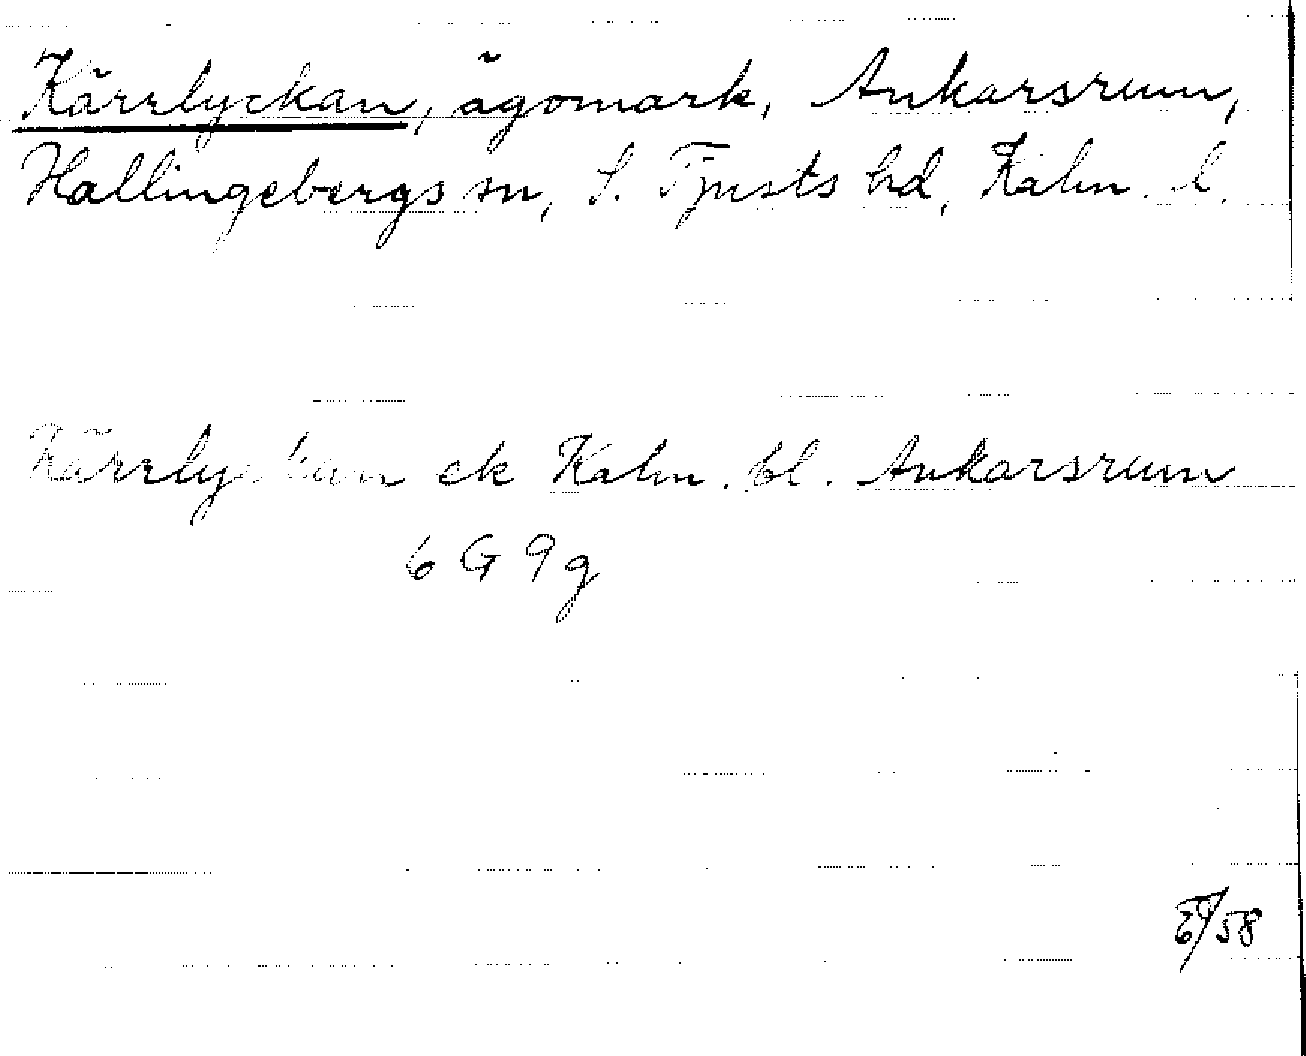 Kärrlyckan, ägomark, Ankarsrum,
Hallingebergs sn, S. Tjusts hd, Kalm. l.
Kärrlyckan ek Kalm. bl. Ankarsrum
6 G 9 g
58